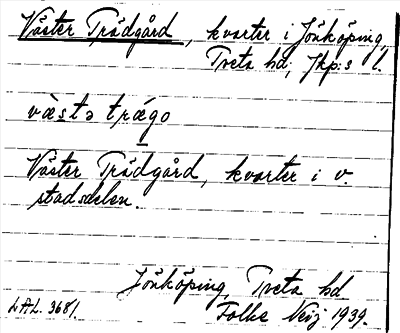 Väster Trädgård, kvarter i Jönköping,
Tveta hd; Jkp:s l.
västə trægo
Väster Trädgård, kvarter i v.
stadsdelen.
Jönköping, Tveta hd
LAL. 3681. Folke 1939.